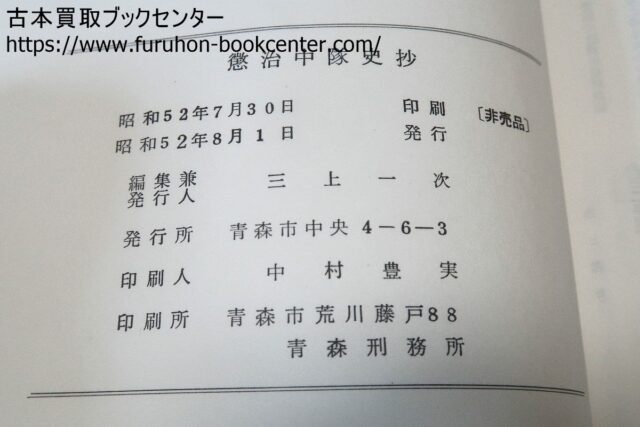 古本買取ブックセンター
https://www.furuhon-bookcenter.com/
懲治中隊史抄
昭和52年7月30日 印刷 〔非売品〕
昭和52年8月1日 発行
編集兼
発行人 三上一次
発行所 青森市中央4-6-3
印刷人 中村豊実
印刷所 青森市荒川藤戸88
青森刑務所